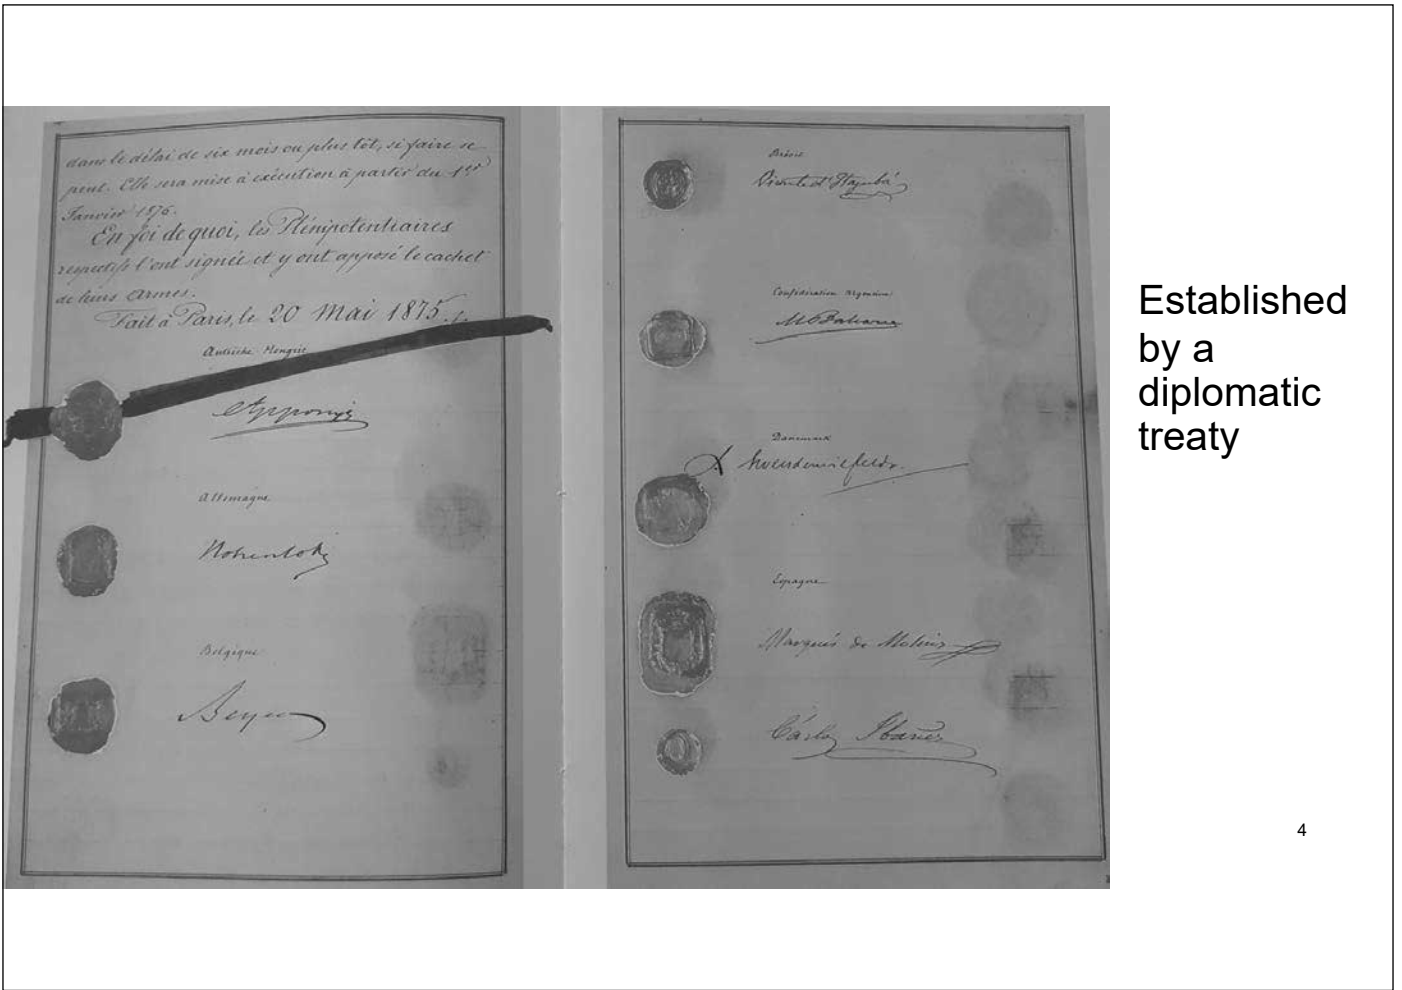 dans le délai de six mois ou plus tôt, si faire se
peut. Elle sera mise à exécution à partir du 1er
Janvier 1876.
En foi de quoi, les Plénipotentiaires
respectifs l'ont signée et y ont apposé le cachet
de leurs armes.
Fait à Paris, le 20 Mai 1875.
Autriche Hongrie
Apponyi
Allemagne
Hohenlohe
Belgique
Beyens
Brésil
Vicomte d'Itajubá
Confédération Argentine
M Balcarce
Danemark
Espagne
Marqués de Molins
Carlos Ibañez
Established
by a
diplomatic
treaty
4